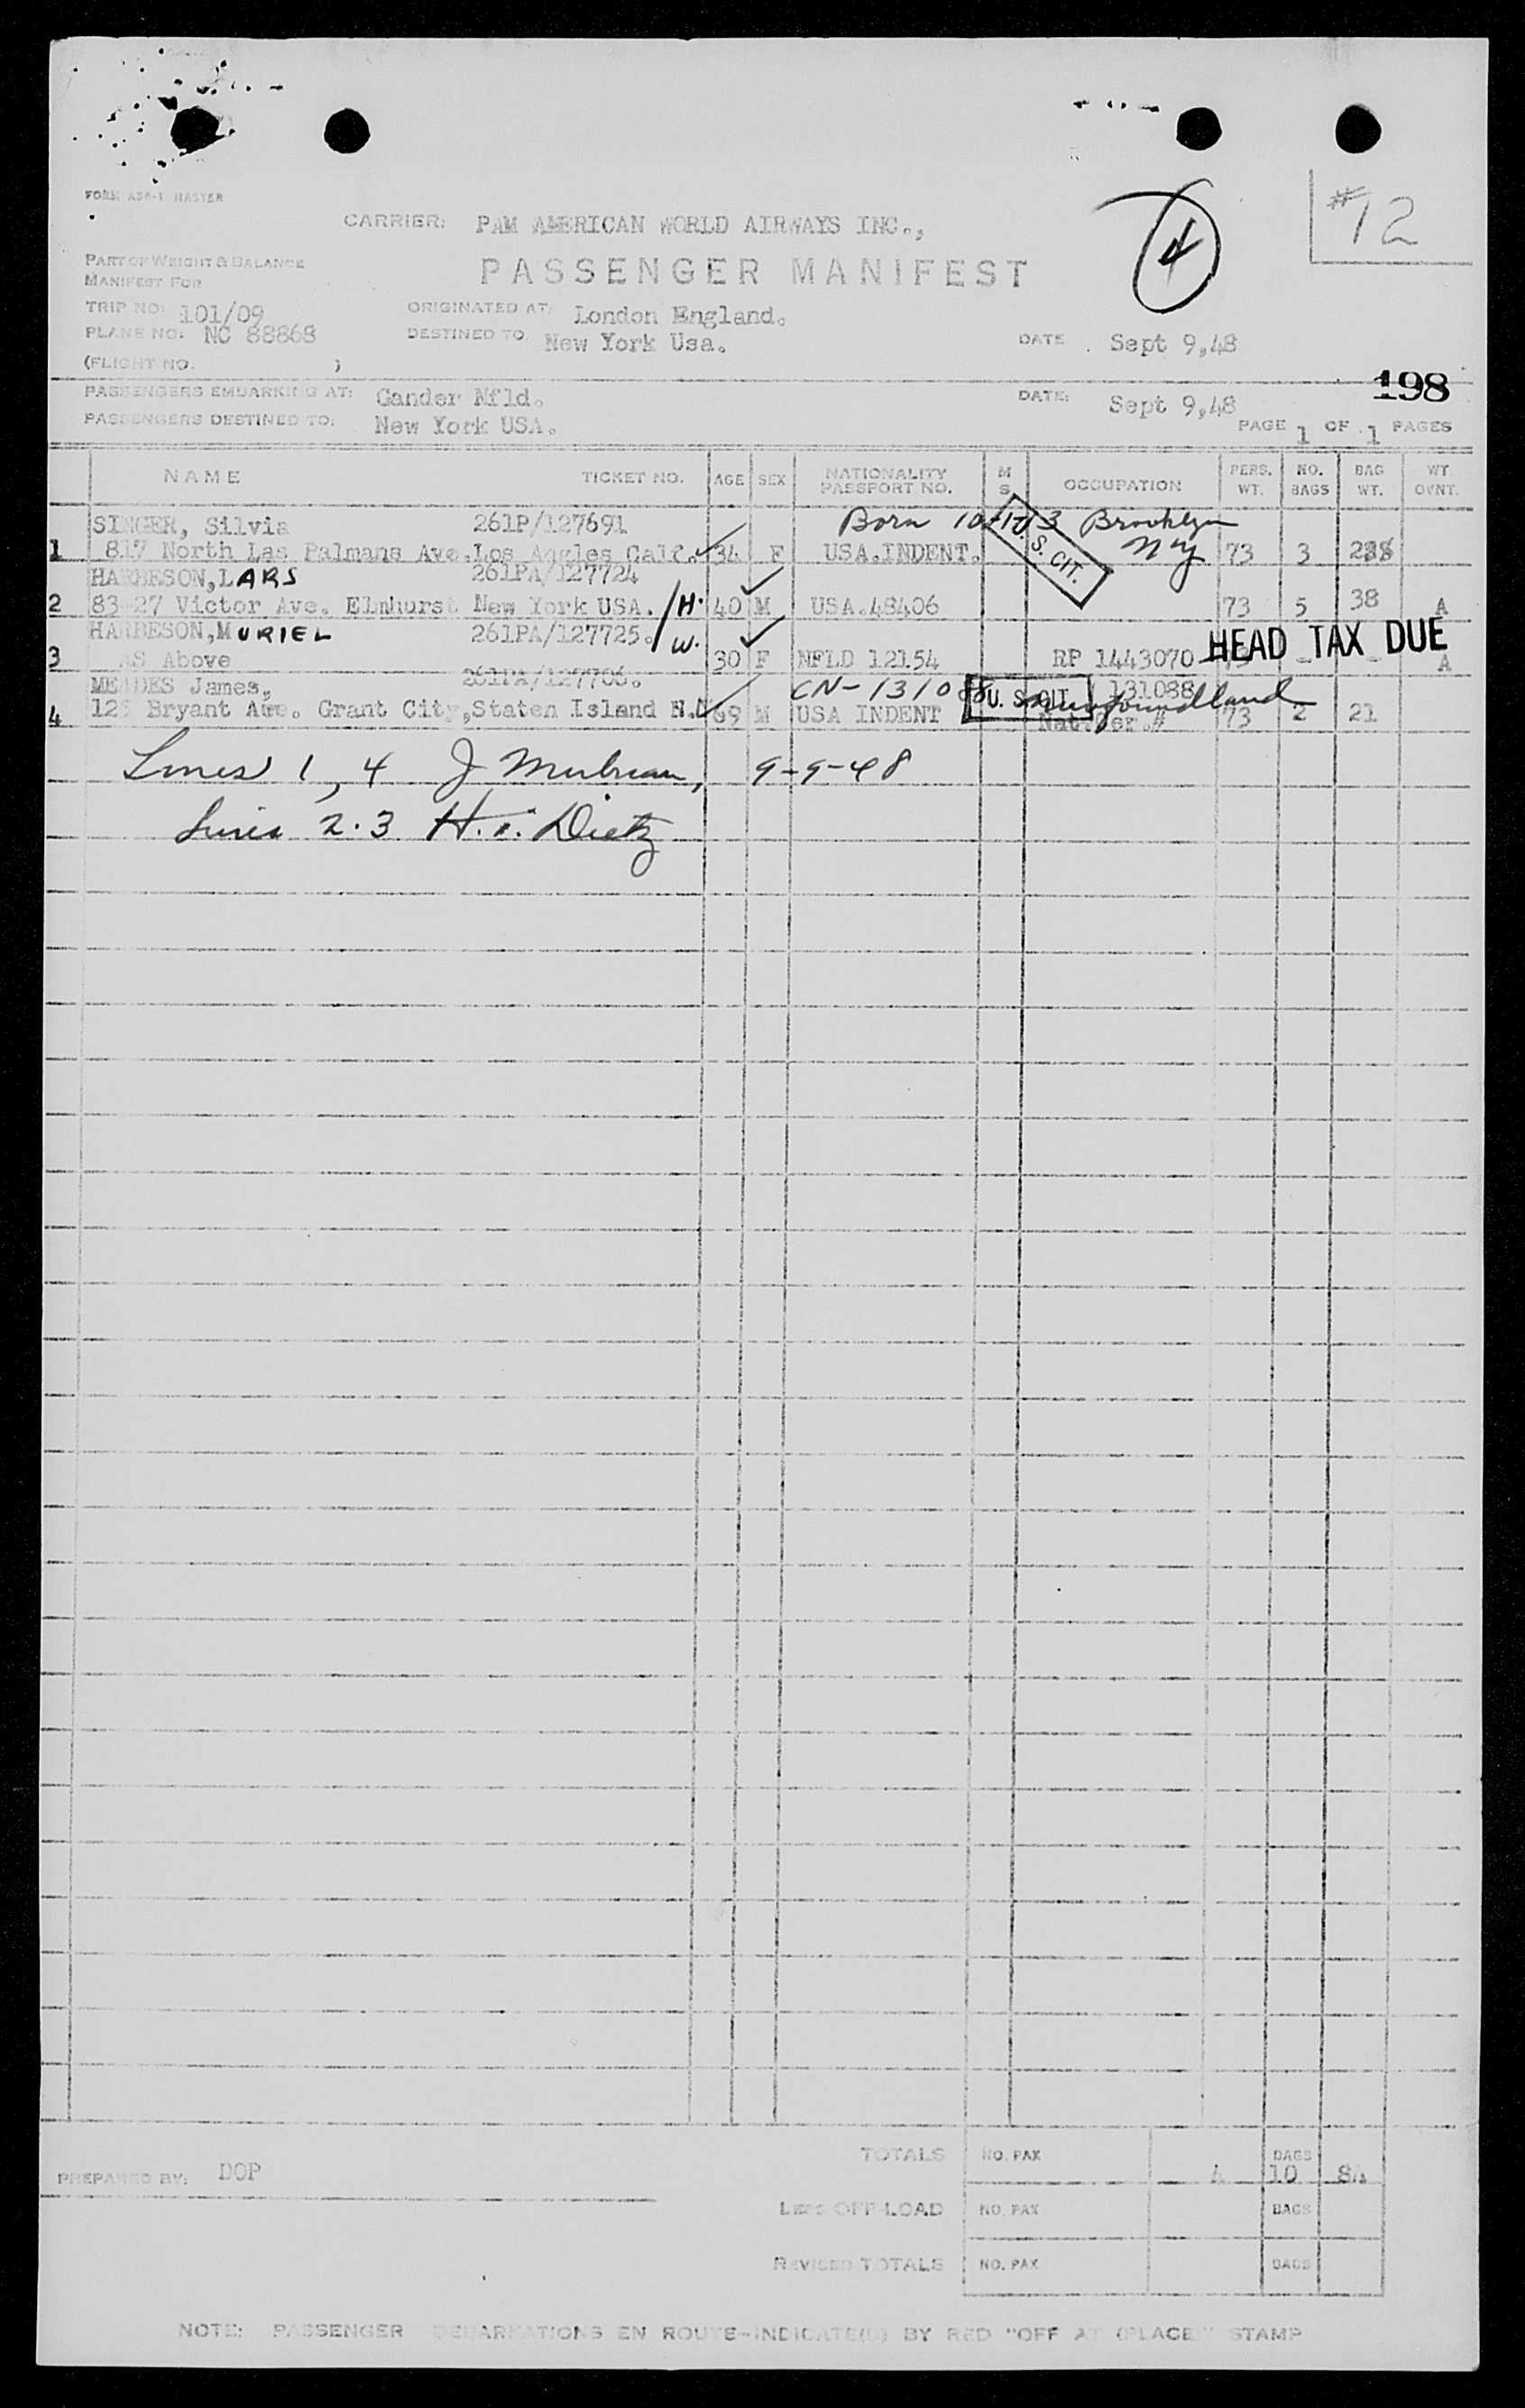 FORM ASR-1 MASTER
#12
4
CARRIER: PAM AMERICAN WORLD AIRWAYS INC.,
PART OF WEIGHT & BALANCE
MANIFEST FOR
PASSENGER MANIFEST
TRIP NO: 101/09 ORIGINATED AT: London England.
PLANE NO: NC 88868 DESTINED TO New York Usa. DATE Sept 9,48
(FLIGHT NO. )
198
PASSENGERS EMBARKING AT: Gander Nfld. DATE: Sept 9,48
PASSENGERS DESTINED TO: New York USA. PAGE 1 OF 1 PAGES
NAME TICKET NO. AGE SEX NATIONALITY PASSPORT NO. M S OCCUPATION PERS. WT. NO. BAGS BAG WT. WT. OVNT.
SINGER, Silvia 261P/127691 Born Brooklyn
1 817 North Las Palmans Ave.Los Angles Calf. 34 F USA.INDENT. U. S. CIT. NY 73 3
HARBESON, LARS 261PA/127724
2 83-27 Victor Ave. Elmhurst New York USA. H. 40 M USA.48406 73 5 38 A
HARBESON, MURIEL 261PA/127725. W. HEAD TAX DUE
3 AS Above 30 F NFLD 12154 RP 1443070 - - A
MEADES James, 261PA/127706. CN-131088 131088
4 Bryant Ave. Grant City, Staten Island 69 M USA INDENT U. S. CIT. Newfoundland Nat.Cer.# 73 2 21
Lines 1, 4 J 9-9-48
Lines 2.3 H. Dietz
TOTALS NO. PAX 4 BAGS 10 84
PREPARED BY: DOP
LESS OFF-LOAD NO. PAX BAGS
REVISED TOTALS NO. PAX BAGS
NOTE: PASSENGER DEBARKATIONS EN ROUTE-INDICATE(D) BY RED "OFF AT (PLACE)" STAMP